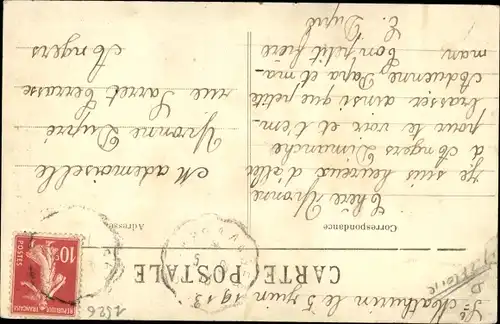 St Mathurin le 5 juin 1913
CARTE POSTALE
Correspondance
Adresse
Chère Yvonne
Je suis heureux d'aller
à Angers Dimanche
pour te voir et t'em-
brasser ainsi que petite
Adrienne Papa et ma-
man
Ton petit frère
E. Dupré
Mademoiselle
Yvonne Dupré
rue Larret Terrasse
Angers
10c
POSTES
1526